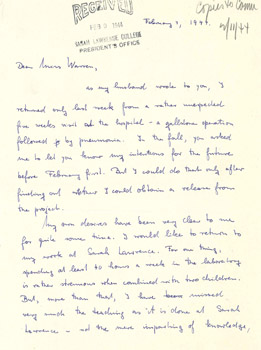 RECEIVED
FEB 1944
SARAH LAWRENCE COLLEGE
PRESIDENT'S OFFICE
Copies to Comm
2/11/44
February 9, 1944.
Dear Miss Warren,
as my husband wrote to you, I
returned only last week from a rather unexpected
five weeks visit at the hospital - a gallstone operation
followed by pneumonia. In the fall, you asked
me to let you know my intentions for the future
before February first. But I could do that only after
finding out whether I could obtain a release from
the project.
My own desires have been very clear to me
for quite some time. I would like to return to
my work at Sarah Lawrence. For one thing,
spending at least 60 hours a week in the laboratory
is rather strenuous when combined with two children.
But, more than that, I have been missed
very much the teaching as it is done at Sarah
Lawrence - not the mere imparting of knowledge,